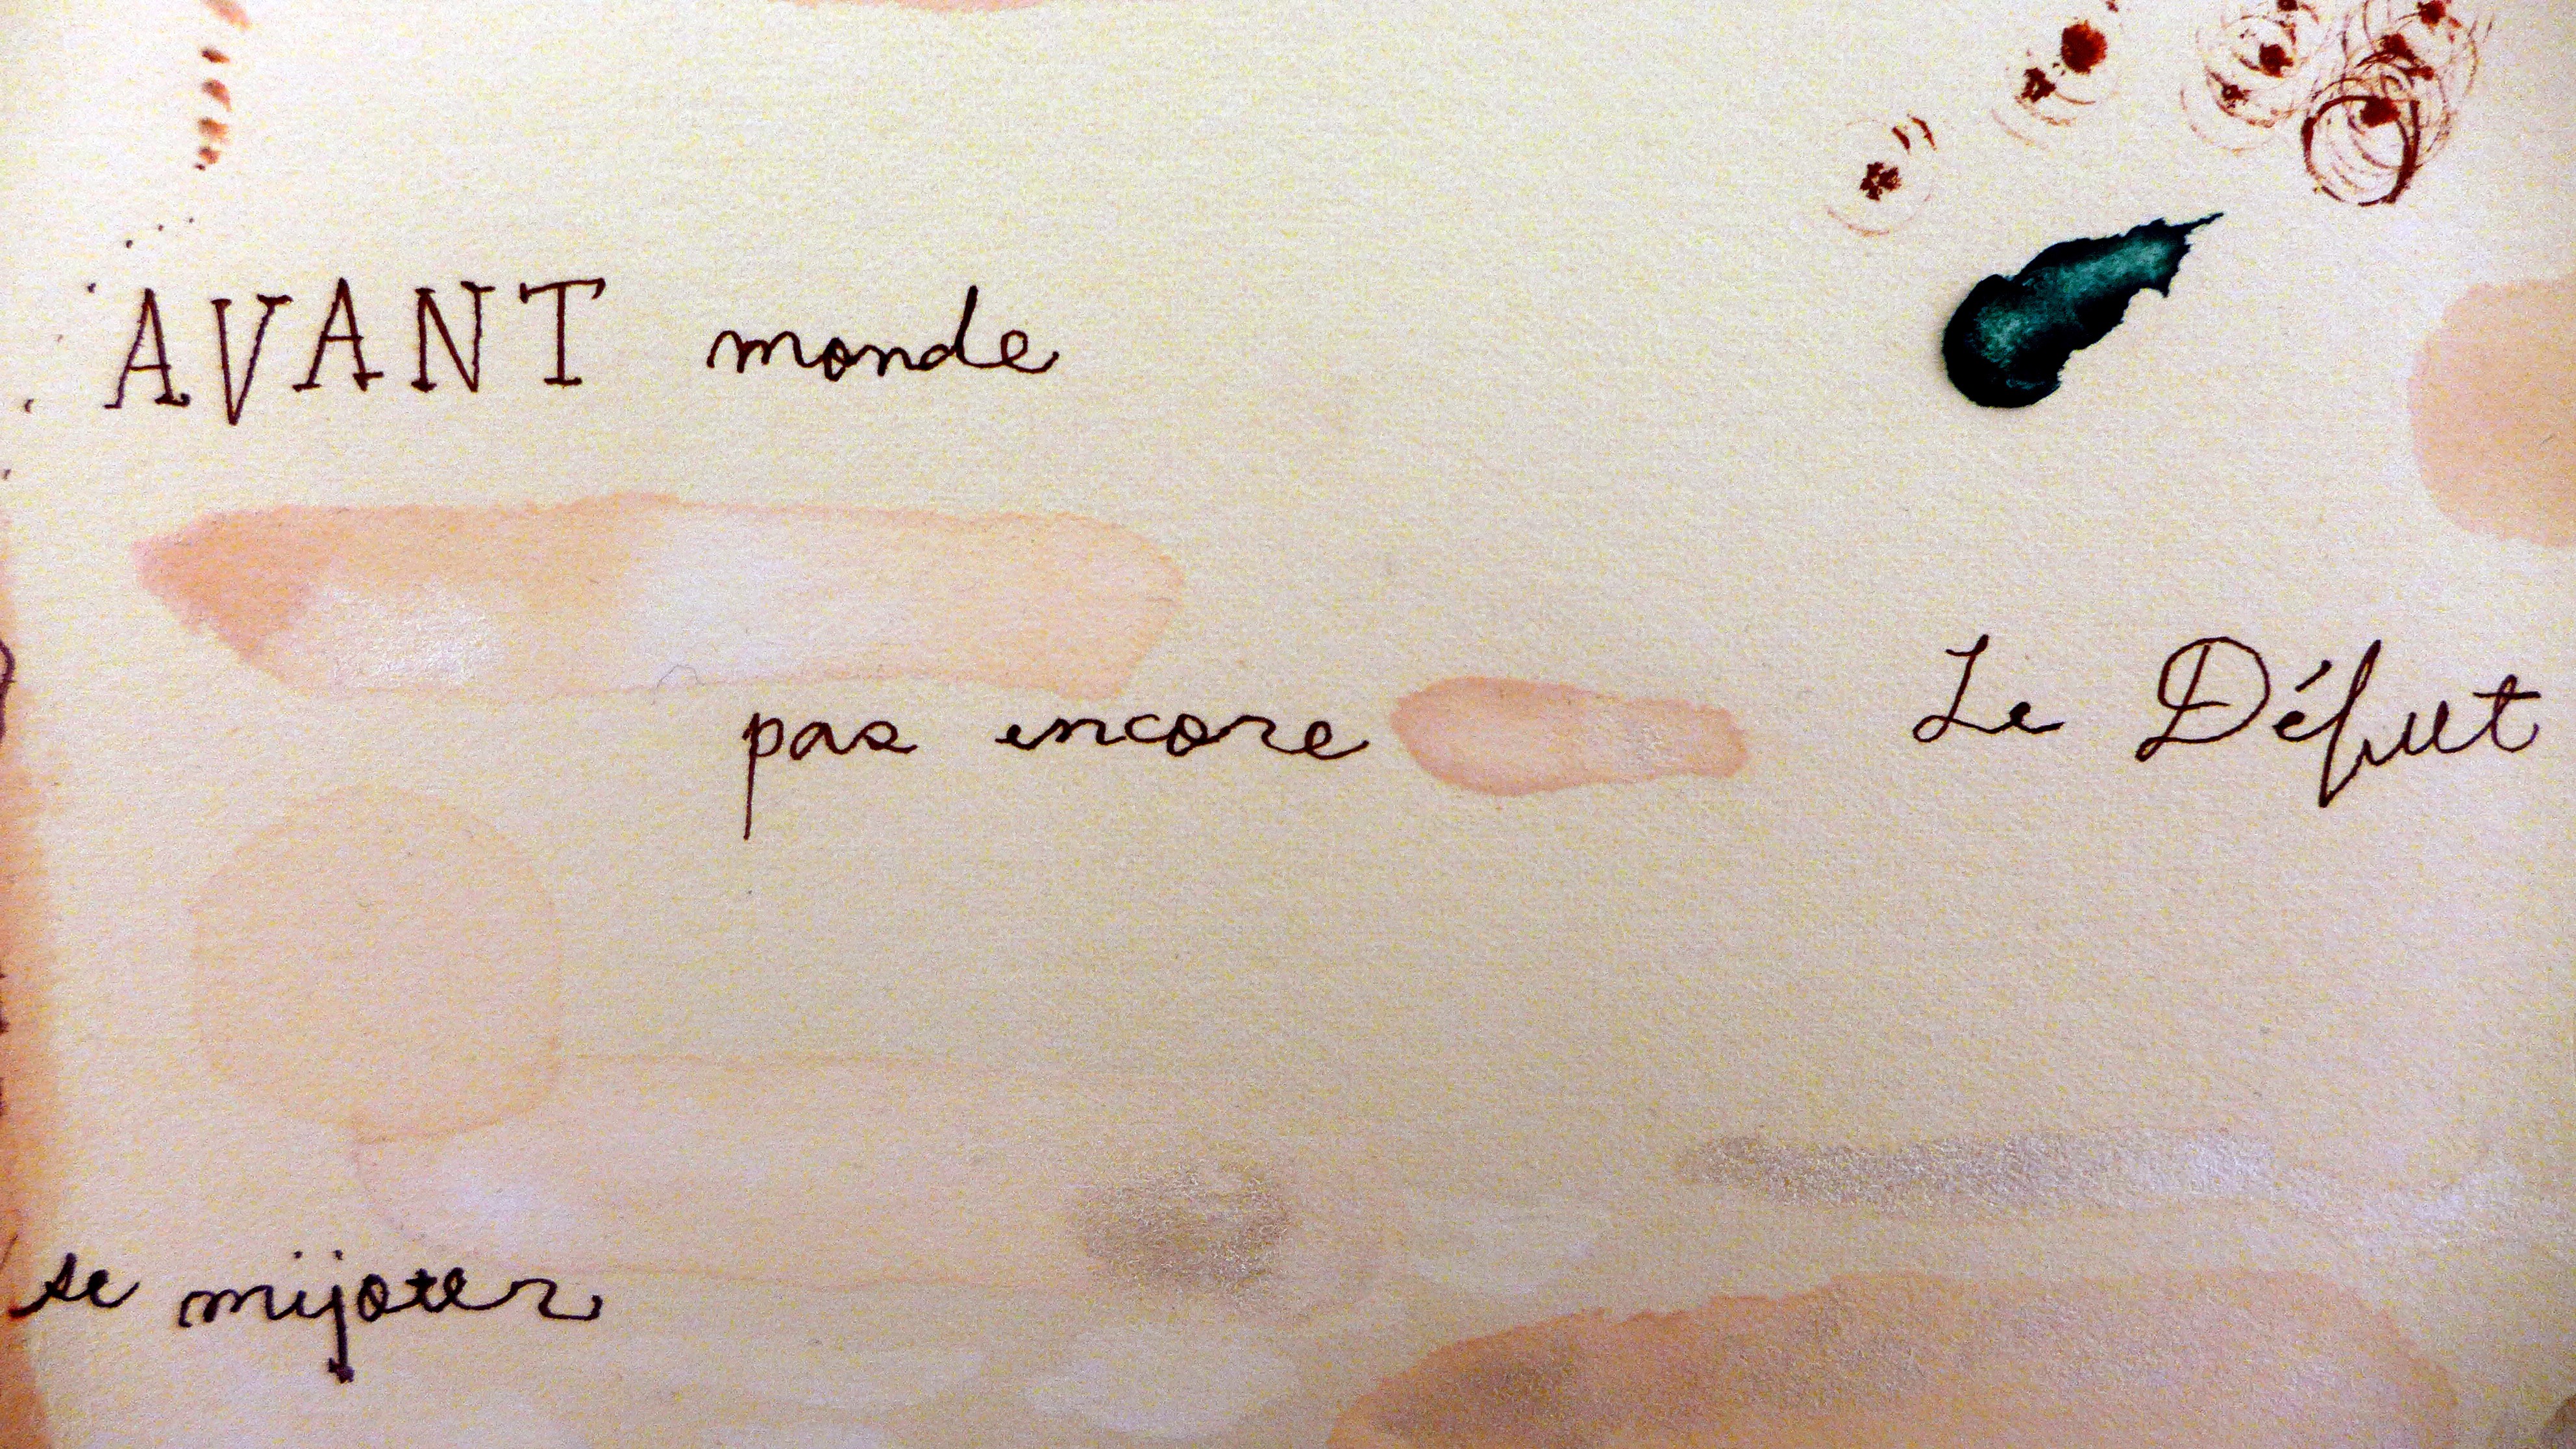 AVANT monde
pas encore
Le Défut
se mijoter